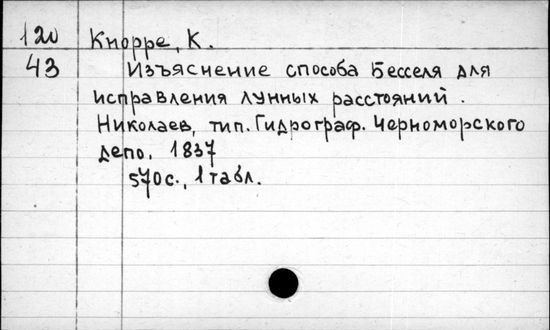 120 Кнорре, К.
43 Изъяснение способа Бесселя для
исправления лунных расстояний.
Николаев, тип. Гидрограф. Черноморского
депо, 1837
570с., 1 табл.